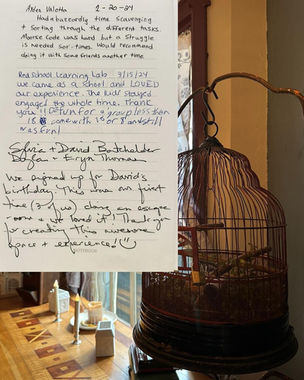 Aslea Valotta 1-20-24
Had a buzzardly time scavenging
+ Sorting through the different tasks.
Morse Code was hard but a struggle
is needed sometimes. Would recommend
doing it with some friends another time
Red School Learning Lab 3/15/24
we came as a school and LOVED
our experience. The kids stayed
engaged the whole time. Thank
you !! fun for a group less than
10 or 8 and still
was fun!
Sylvie + David Batchelder
+ Eryn Thomas
We signed up for David's
birthday. This was our first
time (3 of us) doing an escape
room + we loved it! Thank you
for creating this awesome
space + experience!